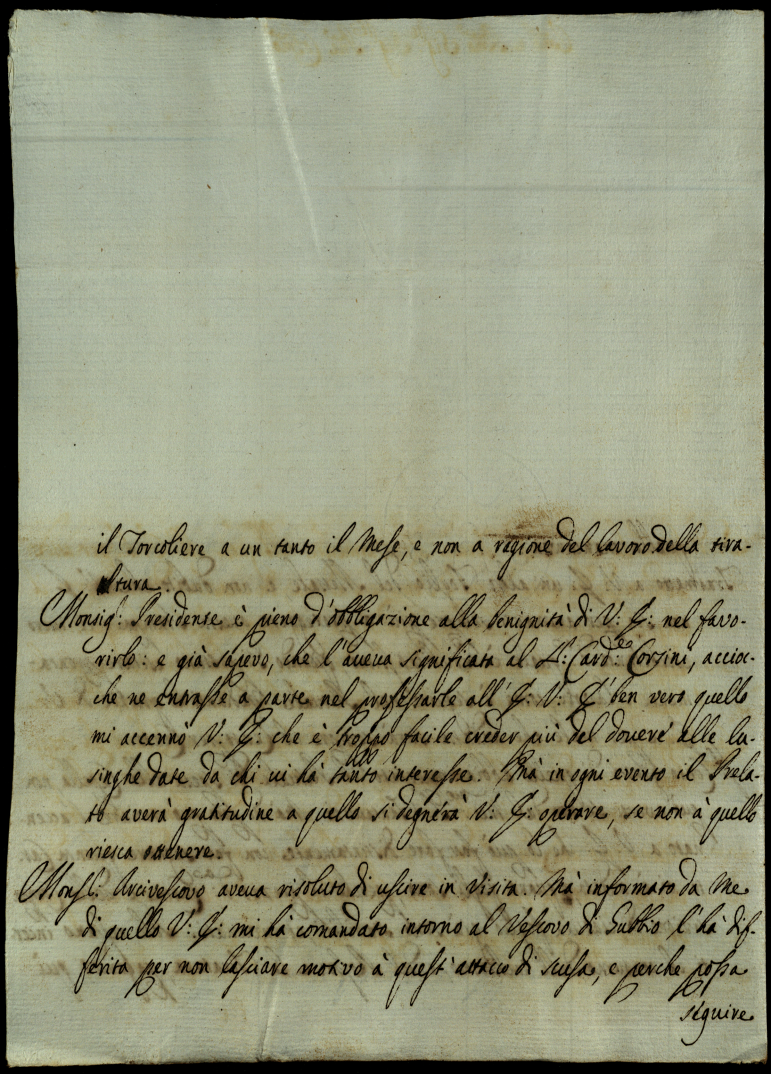 il Torcoliere a un tanto il Mese, e non a ragione del lavoro della tira-
tura
Monsig.r Presidente è pieno d'obbligazione alla benignità di V: E: nel favo-
rirlo: e già sapevo, che l'aveva significata al S.r Card.e Corsini, accioc-
che ne entrasse a parte nel professarle all' E: V: E' ben vero quello
mi accennò V: E: che è troppo facile creder più del dovere alle lu-
singhe date da chi vi hà tanto interesse. Mà in ogni evento il Prela-
to averà gratitudine a quello si degnerà V: E: operare, se non à quello
riesca ottenere.
Mons.r Arcivescovo aveva risoluto di uscire in Visita. Mà informato da me
di quello V: E: mi hà comandato intorno al Vescovo di Gubbio l'hà dif-
ferita per non lasciare motivo à quest' attacco di scusa, e perche possa
seguire